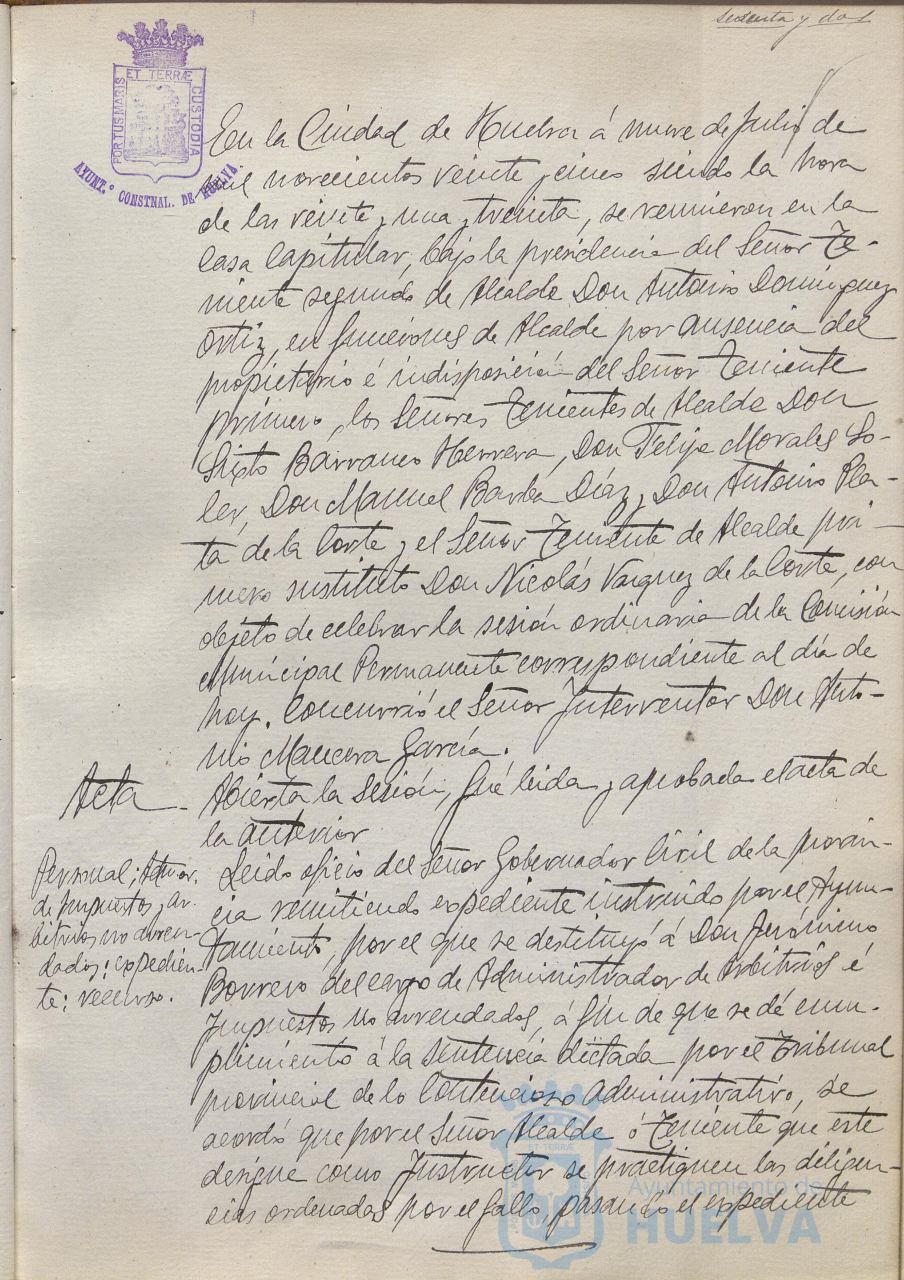 sesenta y dos
ET TERRÆ
PORTUS MARIS
CUSTODIA
AYUNT.º CONSTNAL. DE HUELVA
En la Ciudad de Huelva á nueve de Julio de
mil novecientos veinte y cinco siendo la hora
de las veinte y una y treinta, se reunieron en la
Casa Capitular, bajo la presidencia del Señor Te-
niente segundo de Alcalde Don Antonio Dominguez
Ortiz, en funciones de Alcalde por ausencia del
propietario é indisposición del Señor Teniente
primero, los Señores Tenientes de Alcalde Don
Sixto Barranco Herrera, Don Felipe Morales So-
ler, Don Manuel Barba Díaz y Don Antonio Pla-
ta de la Corte y el Señor Teniente de Alcalde pri-
mero sustituto Don Nicolás Vazquez de la Corte, con
objeto de celebrar la sesión ordinaria de la Comisión
Municipal Permanente correspondiente al día de
hoy. Concurrió el Señor Interventor Don Anto-
nio Mancera García.
Acta - Abierta la sesión, fué leida y aprobada el acta de
la anterior
Personal; Admor.
de Impuestos y ar-
bitrios no arren-
dados; expedien-
te; recurso.
Leido oficio del Señor Gobernador Civil de la provin-
cia remitiendo expediente instruido por el Ayun-
tamiento, por el que se destituyó á Don Jerónimo
Borrero del cargo de Administrador de Arbitrios é
Impuestos no arrendados, á fin de que se dé cum-
plimiento á la sentencia dictada por el Tribunal
provincial de lo Contencioso Administrativo, se
acordó que por el Señor Alcalde ó Teniente que este
designe como Instructor se practiquen las diligen-
cias ordenadas por el fallo, pasando el expediente
Ayuntamiento de
HUELVA